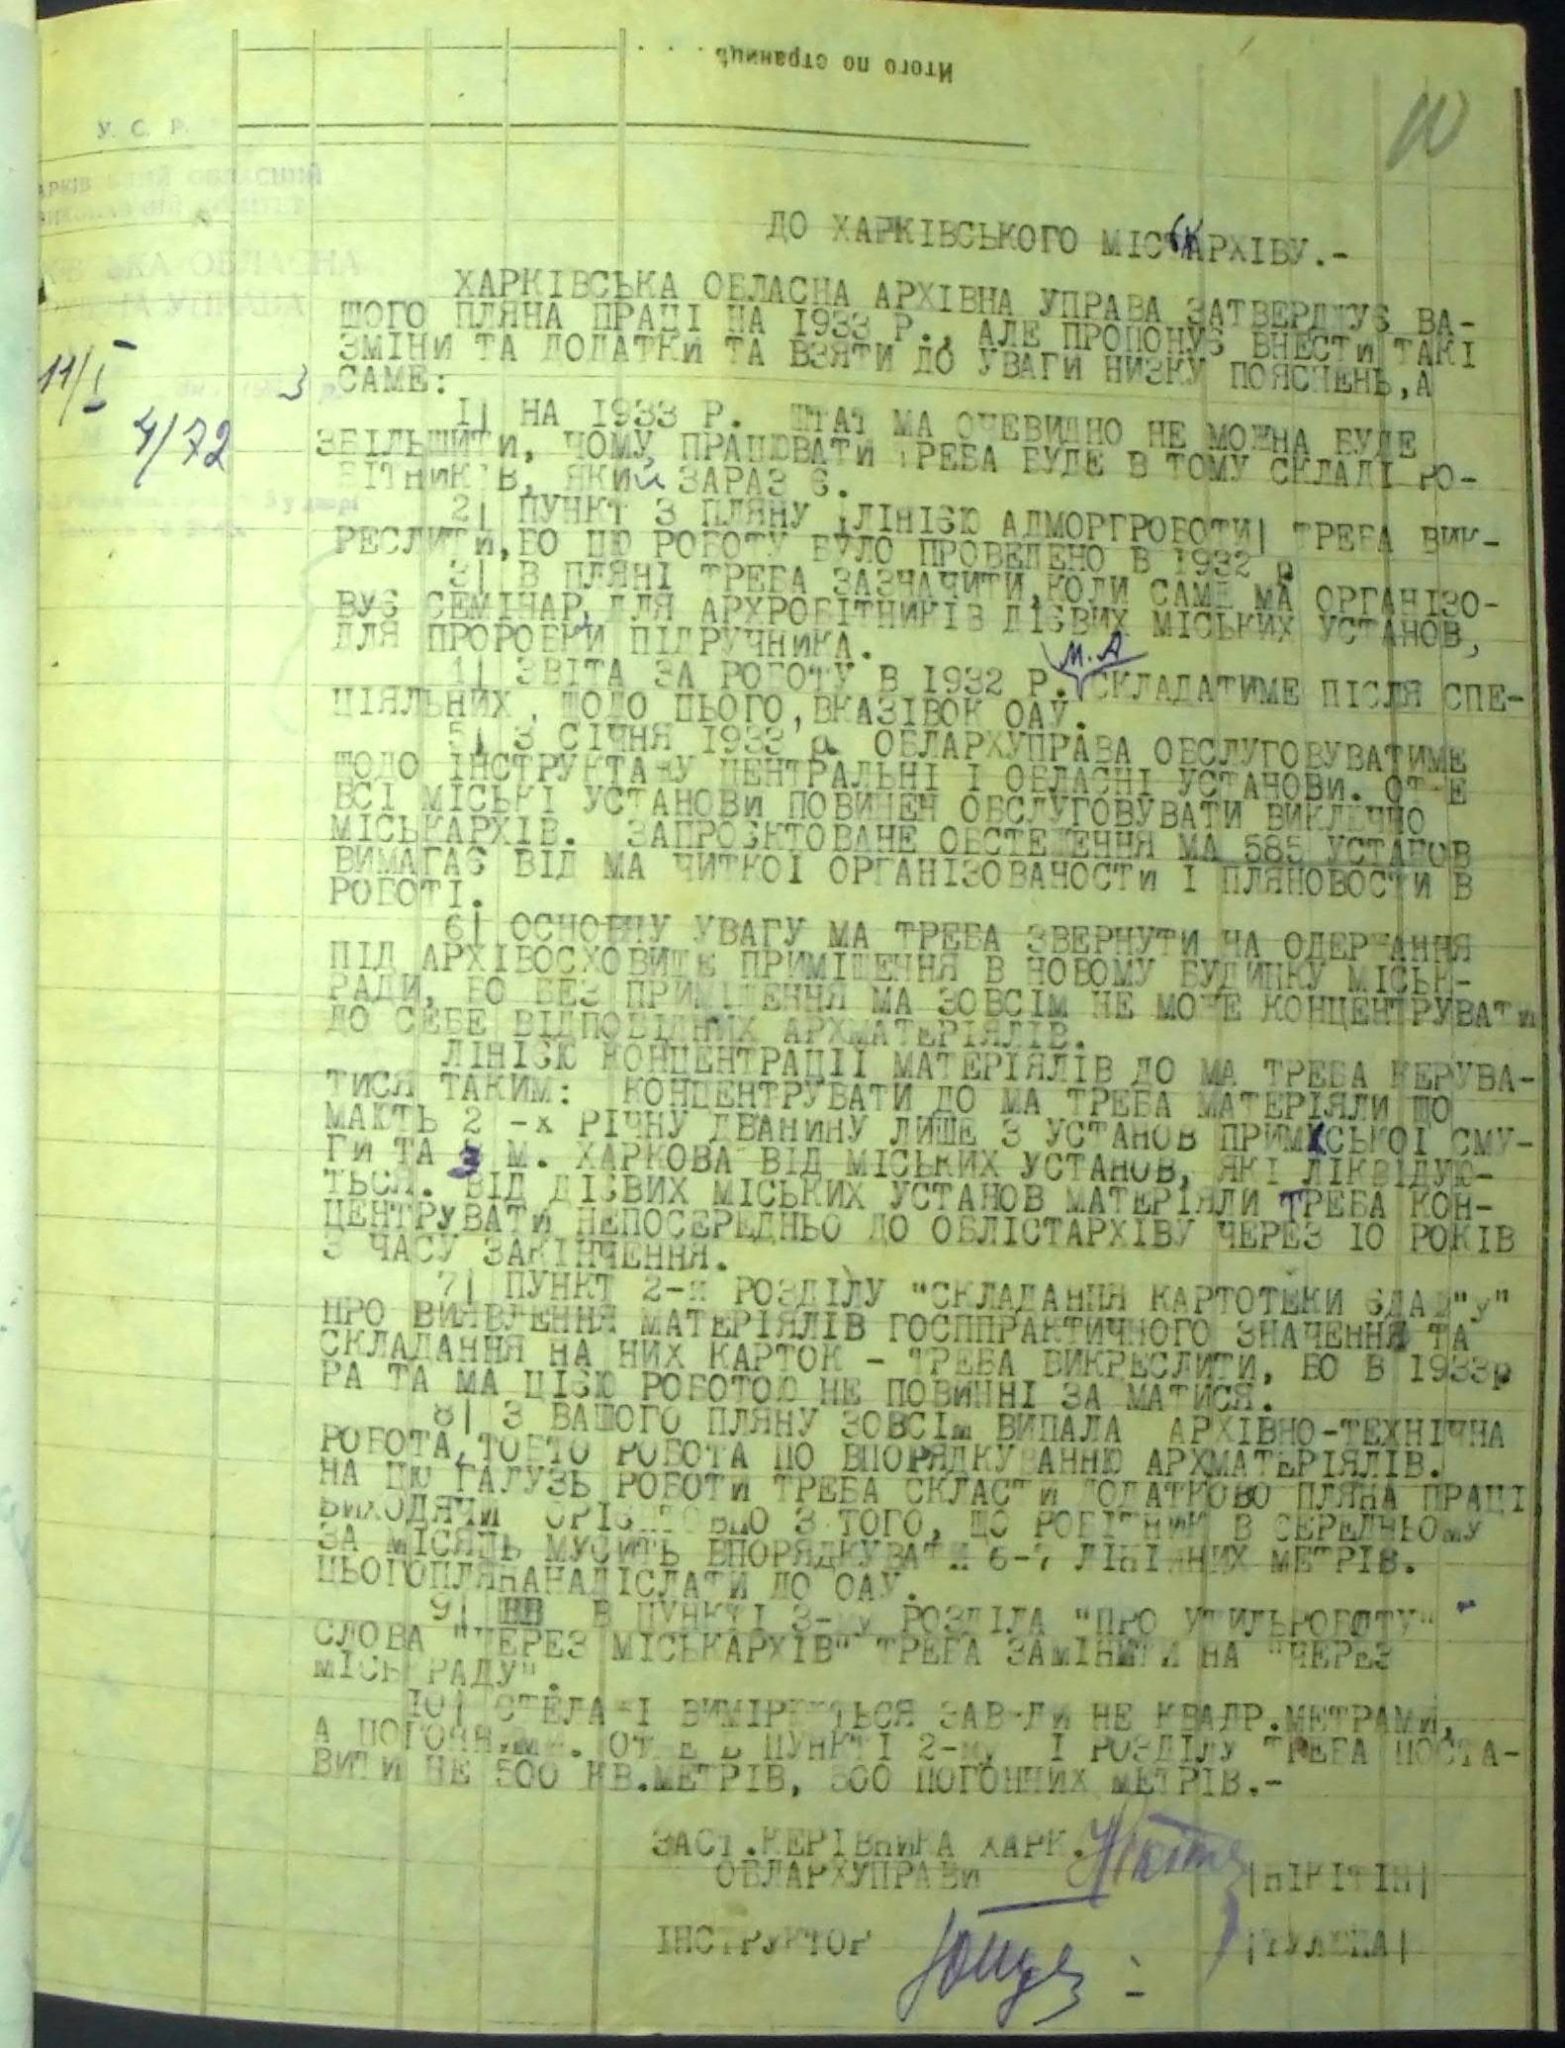 Итого по страницѣ . . .
У. С. Р.
ОБЛАСНИЙ
ОБЛАСНА
УПРАВА
11/I 3
4/72
ДО ХАРКІВСЬКОГО МІСЬКАРХІВУ.-
ХАРКІВСЬКА ОБЛАСНА АРХІВНА УПРАВА ЗАТВЕРДЖУЄ ВА-
ШОГО ПЛЯНА ПРАЦІ НА 1933 Р., АЛЕ ПРОПОНУЄ ВНЕСТИ ТАКІ
ЗМІНИ ТА ДОДАТКИ ТА ВЗЯТИ ДО УВАГИ НИЗКУ ПОЯСНЕНЬ, А
САМЕ:
1| НА 1933 Р. ШТАТ МА ОЧЕВИДНО НЕ МОЖНА БУДЕ
ЗБІЛЬШИТИ, ЧОМУ ПРАЦЮВАТИ ТРЕБА БУДЕ В ТОМУ СКЛАДІ РО-
БІТНИКІВ, ЯКИЙ ЗАРАЗ Є.
2| ПУНКТ 3 ПЛЯНУ |ЛІНІЄЮ АДМОРГРОБОТИ| ТРЕБА ВИК-
РЕСЛИТИ, БО ЦЮ РОБОТУ БУЛО ПРОВЕДЕНО В 1932 р
3| В ПЛЯНІ ТРЕБА ЗАЗНАЧИТИ, КОЛИ САМЕ МА ОРГАНІЗО-
ВУЄ СЕМІНАР ДЛЯ АРХРОБІТНИКІВ ДІЄВИХ МІСЬКИХ УСТАНОВ,
ДЛЯ ПРОРОБКИ ПІДРУЧНИКА.
4| ЗВІТА ЗА РОБОТУ В 1932 Р. М.А СКЛАДАТИМЕ ПІСЛЯ СПЕ-
ЦІЯЛЬНИХ, ЩОДО ЦЬОГО, ВКАЗІВОК ОАУ.
5| З СІЧНЯ 1933 р. ОБЛАРХУПРАВА ОБСЛУГОВУВАТИМЕ
ЩОДО ІНСТРУКТАЖУ ЦЕНТРАЛЬНІ І ОБЛАСНІ УСТАНОВИ. ОТЖЕ
ВСІ МІСЬКІ УСТАНОВИ ПОВИНЕН ОБСЛУГОВУВАТИ ВИКЛЮЧНО
МІСЬКАРХІВ. ЗАПРОЄКТОВАНЕ ОБСТЕЖЕННЯ МА 585 УСТАНОВ
ВИМАГАЄ ВІД МА ЧИТКОІ ОРГАНІЗОВАНОСТИ І ПЛЯНОВОСТИ В
РОБОТІ.
6| ОСНОВНУ УВАГУ МА ТРЕБА ЗВЕРНУТИ НА ОДЕРЖАННЯ
ПІД АРХІВОСХОВИЩЕ ПРИМІЩЕННЯ В НОВОМУ БУДИНКУ МІСЬК-
РАДИ, БО БЕЗ ПРИМІЩЕННЯ МА ЗОВСІМ НЕ МОЖЕ КОНЦЕНТРУВАТИ
ДО СЕБЕ ВІДПОВІДНИХ АРХМАТЕРІЯЛІВ.
ЛІНІЄЮ КОНЦЕНТРАЦІІ МАТЕРІЯЛІВ ДО МА ТРЕБА КЕРУВА-
ТИСЯ ТАКИМ: КОНЦЕНТРУВАТИ ДО МА ТРЕБА МАТЕРІЯЛИ ЩО
МАЮТЬ 2 -х РІЧНУ ДВАНИНУ ЛИШЕ З УСТАНОВ ПРИМІСЬКОІ СМУ-
ГИ ТА З М. ХАРКОВА ВІД МІСЬКИХ УСТАНОВ, ЯКІ ЛІКВІДУЮ-
ТЬСЯ. ВІД ДІЄВИХ МІСЬКИХ УСТАНОВ МАТЕРІЯЛИ ТРЕБА КОН-
ЦЕНТРУВАТИ НЕПОСЕРЕДНЬО ДО ОБЛІСТАРХІВУ ЧЕРЕЗ 10 РОКІВ
З ЧАСУ ЗАКІНЧЕННЯ.
7| ПУНКТ 2-й РОЗДІЛУ "СКЛАДАННЯ КАРТОТЕКИ ЄДАФ"у"
ПРО ВИЯВЛЕННЯ МАТЕРІЯЛІВ ГОСППРАКТИЧНОГО ЗНАЧЕННЯ ТА
СКЛАДАННЯ НА НИХ КАРТОК - ТРЕБА ВИКРЕСЛИТИ, БО В 1933р
РА ТА МА ЦІЄЮ РОБОТОЮ НЕ ПОВИННІ ЗАЙМАТИСЯ.
8| З ВАШОГО ПЛЯНУ ЗОВСІМ ВИПАЛА АРХІВНО-ТЕХНІЧНА
РОБОТА, ТОБТО РОБОТА ПО ВПОРЯДКУВАННЮ АРХМАТЕРІЯЛІВ.
НА ЦЮ ГАЛУЗЬ РОБОТИ ТРЕБА СКЛАСТИ ДОДАТКОВО ПЛЯНА ПРАЦІ
ВИХОДЯЧИ ОРІЄНТОВНО З ТОГО, ЩО РОБІТНИК В СЕРЕДНЬОМУ
ЗА МІСЯЦЬ МУСИТЬ ВПОРЯДКУВАТИ 6-7 ЛІНІЙНИХ МЕТРІВ.
ЦЬОГОПЛЯНАНАДІСЛАТИ ДО ОАУ.
9| В ПУНКТІ 3-му РОЗДІЛА "ПРО УТИЛЬРОБОТУ"
СЛОВА "ЧЕРЕЗ МІСЬКАРХІВ" ТРЕБА ЗАМІНИТИ НА "ЧЕРЕЗ
МІСЬКРАДУ".
10| СТЕЛАЖІ ВИМІРЮЮТЬСЯ ЗАВЖДИ НЕ КВАДР.МЕТРАМИ,
А ПОГОНИМИ. ОТЖЕ В ПУНКТІ 2-му І РОЗДІЛУ ТРЕБА ПОСТА-
ВИТИ НЕ 500 КВ.МЕТРІВ, 500 ПОГОННИХ МЕТРІВ.-
ЗАСТ.КЕРІВНИКА ХАРК.
ОБЛАРХУПРАВИ |НІКІТІН|
ІНСТРУКТОР